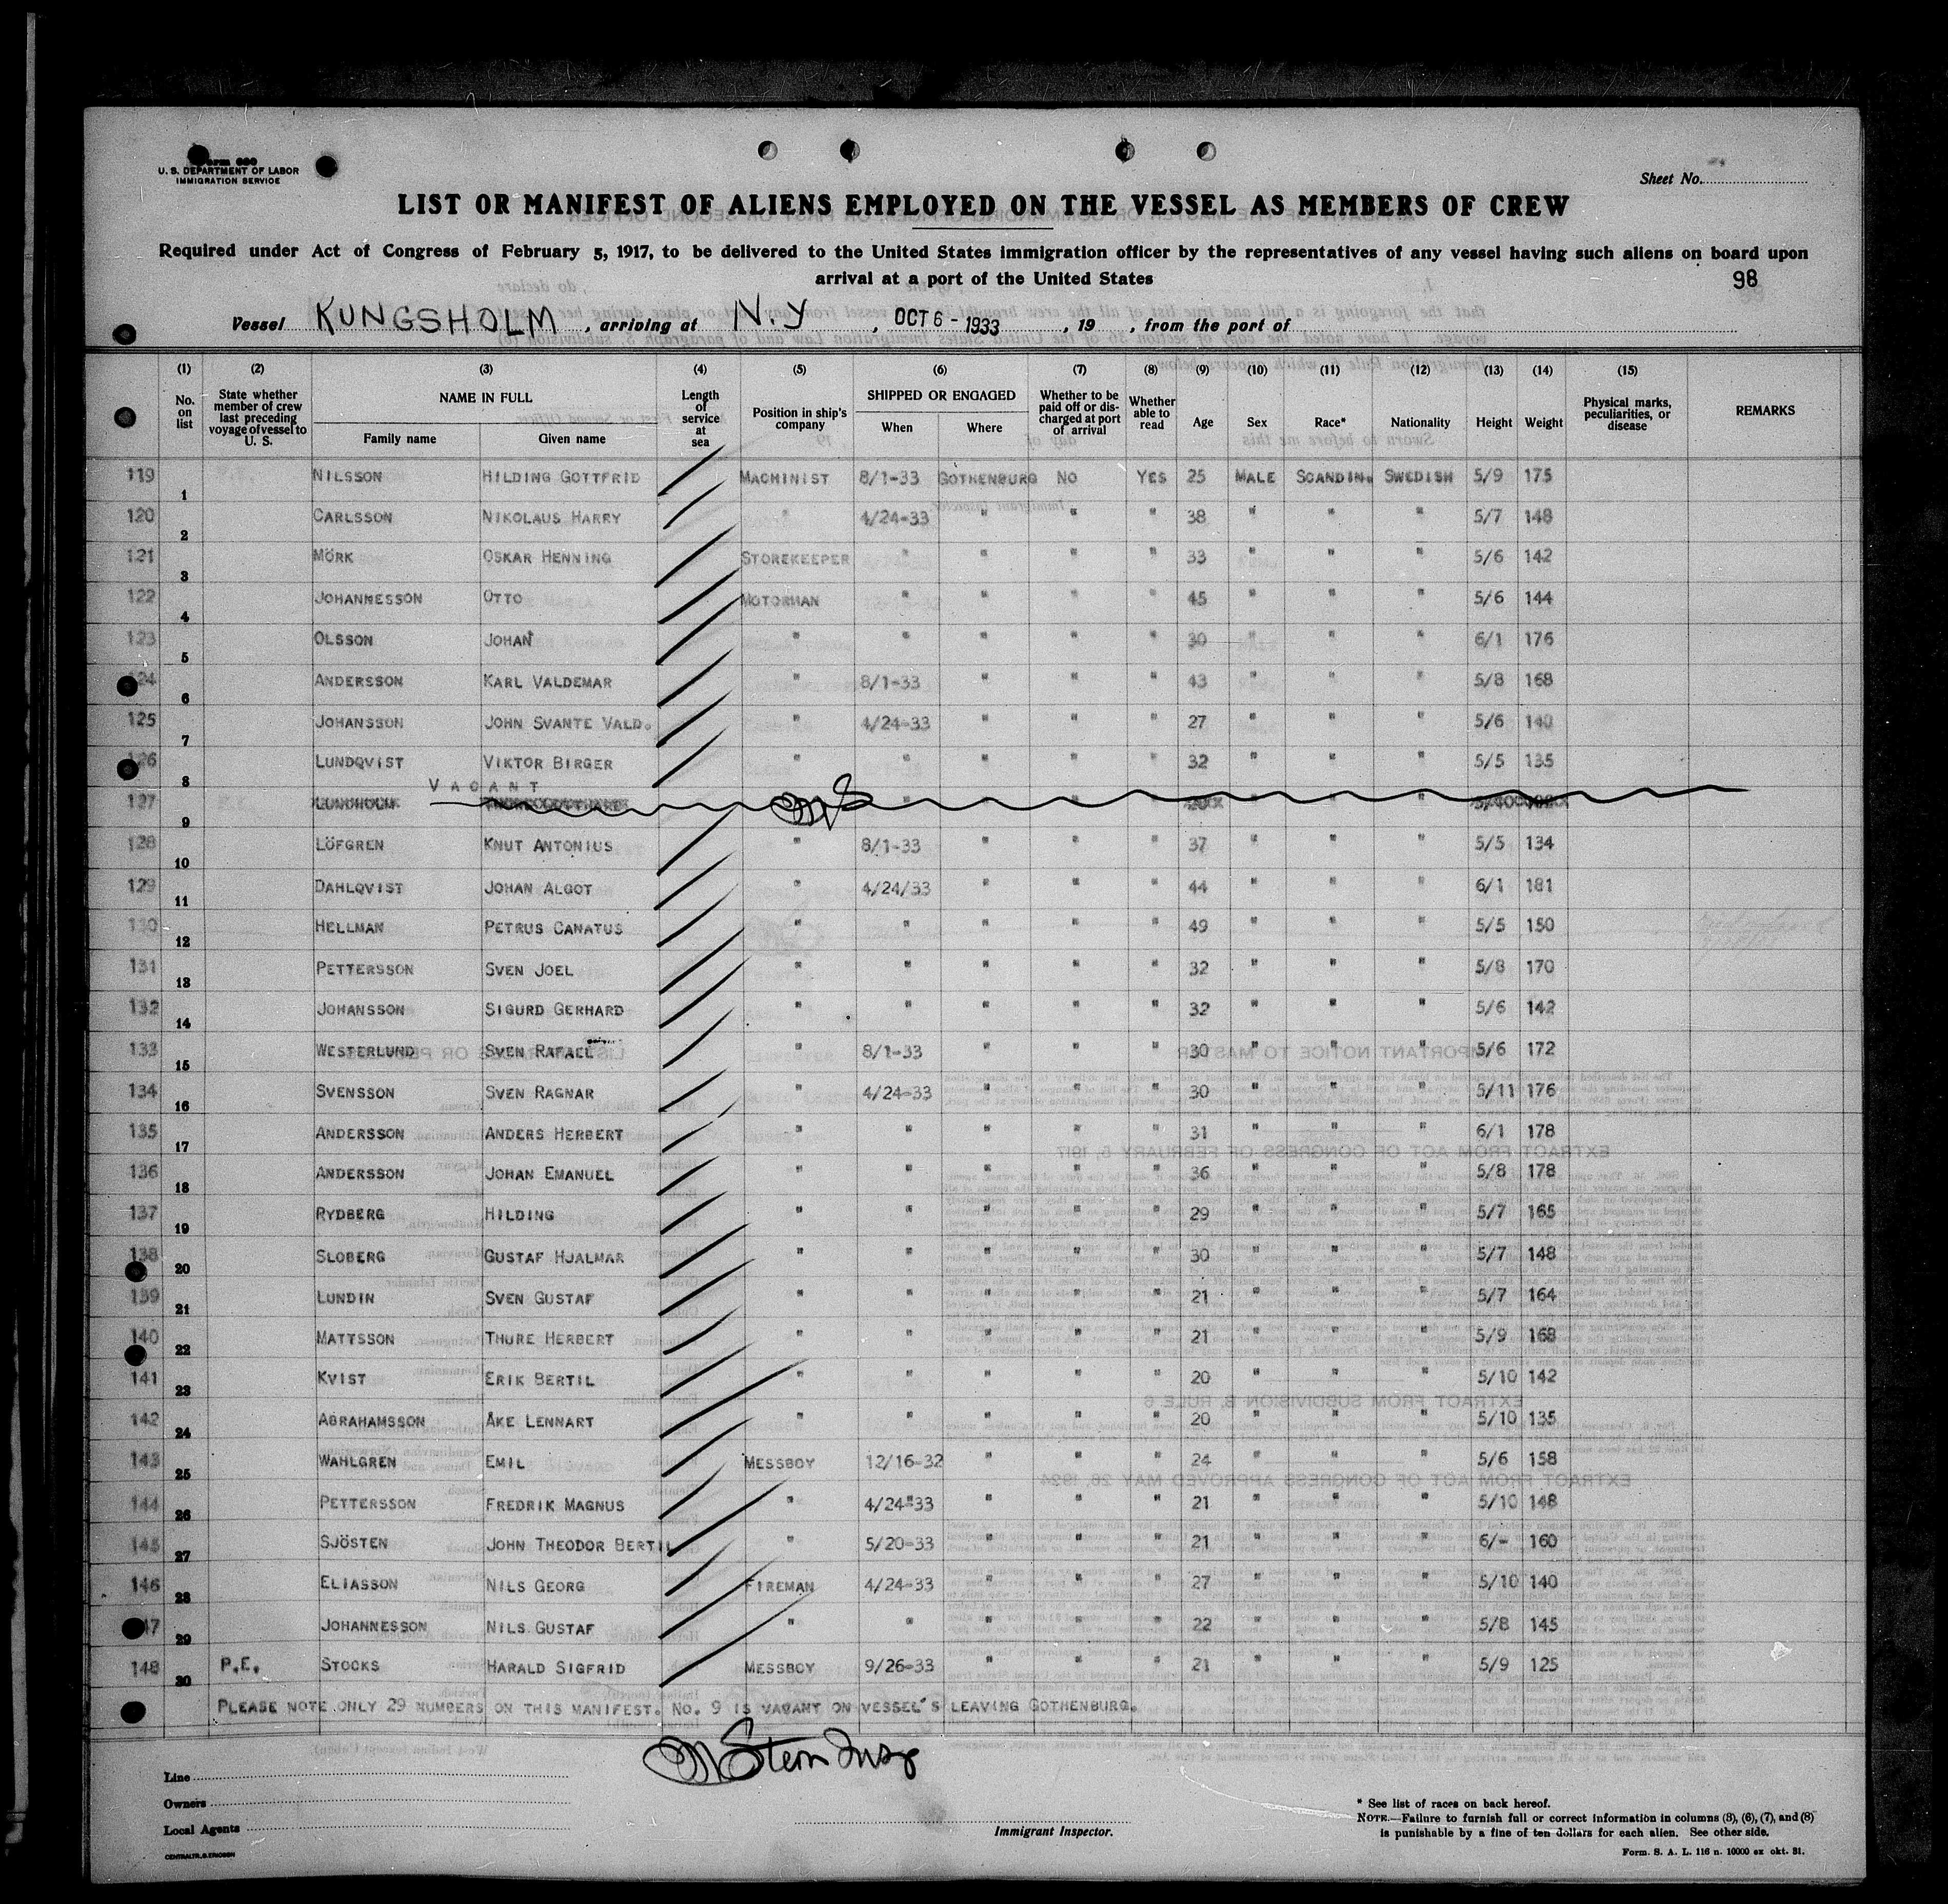 Form 680
U. S. DEPARTMENT OF LABOR
IMMIGRATION SERVICE
Sheet No.
LIST OR MANIFEST OF ALIENS EMPLOYED ON THE VESSEL AS MEMBERS OF CREW
Required under Act of Congress of February 5, 1917, to be delivered to the United States immigration officer by the representatives of any vessel having such aliens on board upon
arrival at a port of the United States
98
Vessel KUNGSHOLM , arriving at N.Y , OCT 6 - 1933 , 19 , from the port of
(1) No. on list (2) State whether member of crew last preceding voyage of vessel to U. S. (3) NAME IN FULL Family name Given name (4) Length of service at sea (5) Position in ship's company (6) SHIPPED OR ENGAGED When Where (7) Whether to be paid off or discharged at port of arrival (8) Whether able to read (9) Age (10) Sex (11) Race* (12) Nationality (13) Height (14) Weight (15) Physical marks, peculiarities, or disease REMARKS
119 1 NILSSON HILDING GOTTFRID MACHINIST 8/1-33 GOTHENBURG NO YES 25 MALE SCANDIN. SWEDISH 5/9 175
120 2 CARLSSON NIKOLAUS HARRY " 4/24-33 " " " 38 " " " 5/7 148
121 3 MÖRK OSKAR HENNING STOREKEEPER " " " " 33 " " " 5/6 142
122 4 JOHANNESSON OTTO MOTORMAN " " " " 45 " " " 5/6 144
123 5 OLSSON JOHAN " " " " " 30 " " " 6/1 176
124 6 ANDERSSON KARL VALDEMAR " 8/1-33 " " " 43 " " " 5/8 168
125 7 JOHANSSON JOHN SVANTE VALD. " 4/24-33 " " " 27 " " " 5/6 140
126 8 LUNDQVIST VIKTOR BIRGER " " " " " 32 " " " 5/5 135
127 9 VACANT
128 10 LÖFGREN KNUT ANTONIUS " 8/1-33 " " " 37 " " " 5/5 134
129 11 DAHLQVIST JOHAN ALGOT " 4/24/33 " " " 44 " " " 6/1 181
130 12 HELLMAN PETRUS CANATUS " " " " " 49 " " " 5/5 150
131 13 PETTERSSON SVEN JOEL " " " " " 32 " " " 5/8 170
132 14 JOHANSSON SIGURD GERHARD " " " " " 32 " " " 5/6 142
133 15 WESTERLUND SVEN RAFAEL " 8/1-33 " " " 30 " " " 5/6 172
134 16 SVENSSON SVEN RAGNAR " 4/24-33 " " " 30 " " " 5/11 176
135 17 ANDERSSON ANDERS HERBERT " " " " " 31 " " " 6/1 178
136 18 ANDERSSON JOHAN EMANUEL " " " " " 36 " " " 5/8 178
137 19 RYDBERG HILDING " " " " " 29 " " " 5/7 165
138 20 SLOBERG GUSTAF HJALMAR " " " " " 30 " " " 5/7 148
139 21 LUNDIN SVEN GUSTAF " " " " " 21 " " " 5/7 164
140 22 MATTSSON THURE HERBERT " " " " " 21 " " " 5/9 168
141 23 KVIST ERIK BERTIL " " " " " 20 " " " 5/10 142
142 24 ABRAHAMSSON ÅKE LENNART " " " " " 20 " " " 5/10 135
143 25 WAHLGREN EMIL MESSBOY 12/16-32 " " " 24 " " " 5/6 158
144 26 PETTERSSON FREDRIK MAGNUS " 4/24-33 " " " 21 " " " 5/10 148
145 27 SJÖSTEN JOHN THEODOR BERTIL " 5/20-33 " " " 21 " " " 6/- 160
146 28 ELIASSON NILS GEORG FIREMAN 4/24-33 " " " 27 " " " 5/10 140
147 29 JOHANNESSON NILS GUSTAF " " " " " 22 " " " 5/8 145
148 30 P.E. STOCKS HARALD SIGFRID MESSBOY 9/26-33 " " " 21 " " " 5/9 125
PLEASE NOTE ONLY 29 NUMBERS ON THIS MANIFEST. NO. 9 IS VACANT ON VESSEL'S LEAVING GOTHENBURG.
Stern Insp
Line
Owners
Local Agents
Immigrant Inspector.
* See list of races on back hereof.
NOTE.—Failure to furnish full or correct information in columns (3), (6), (7), and (8)
is punishable by a fine of ten dollars for each alien. See other side.
CENTRALTR. G. ERICSON
Form. S. A. L. 116 n. 10000 ex okt. 31.